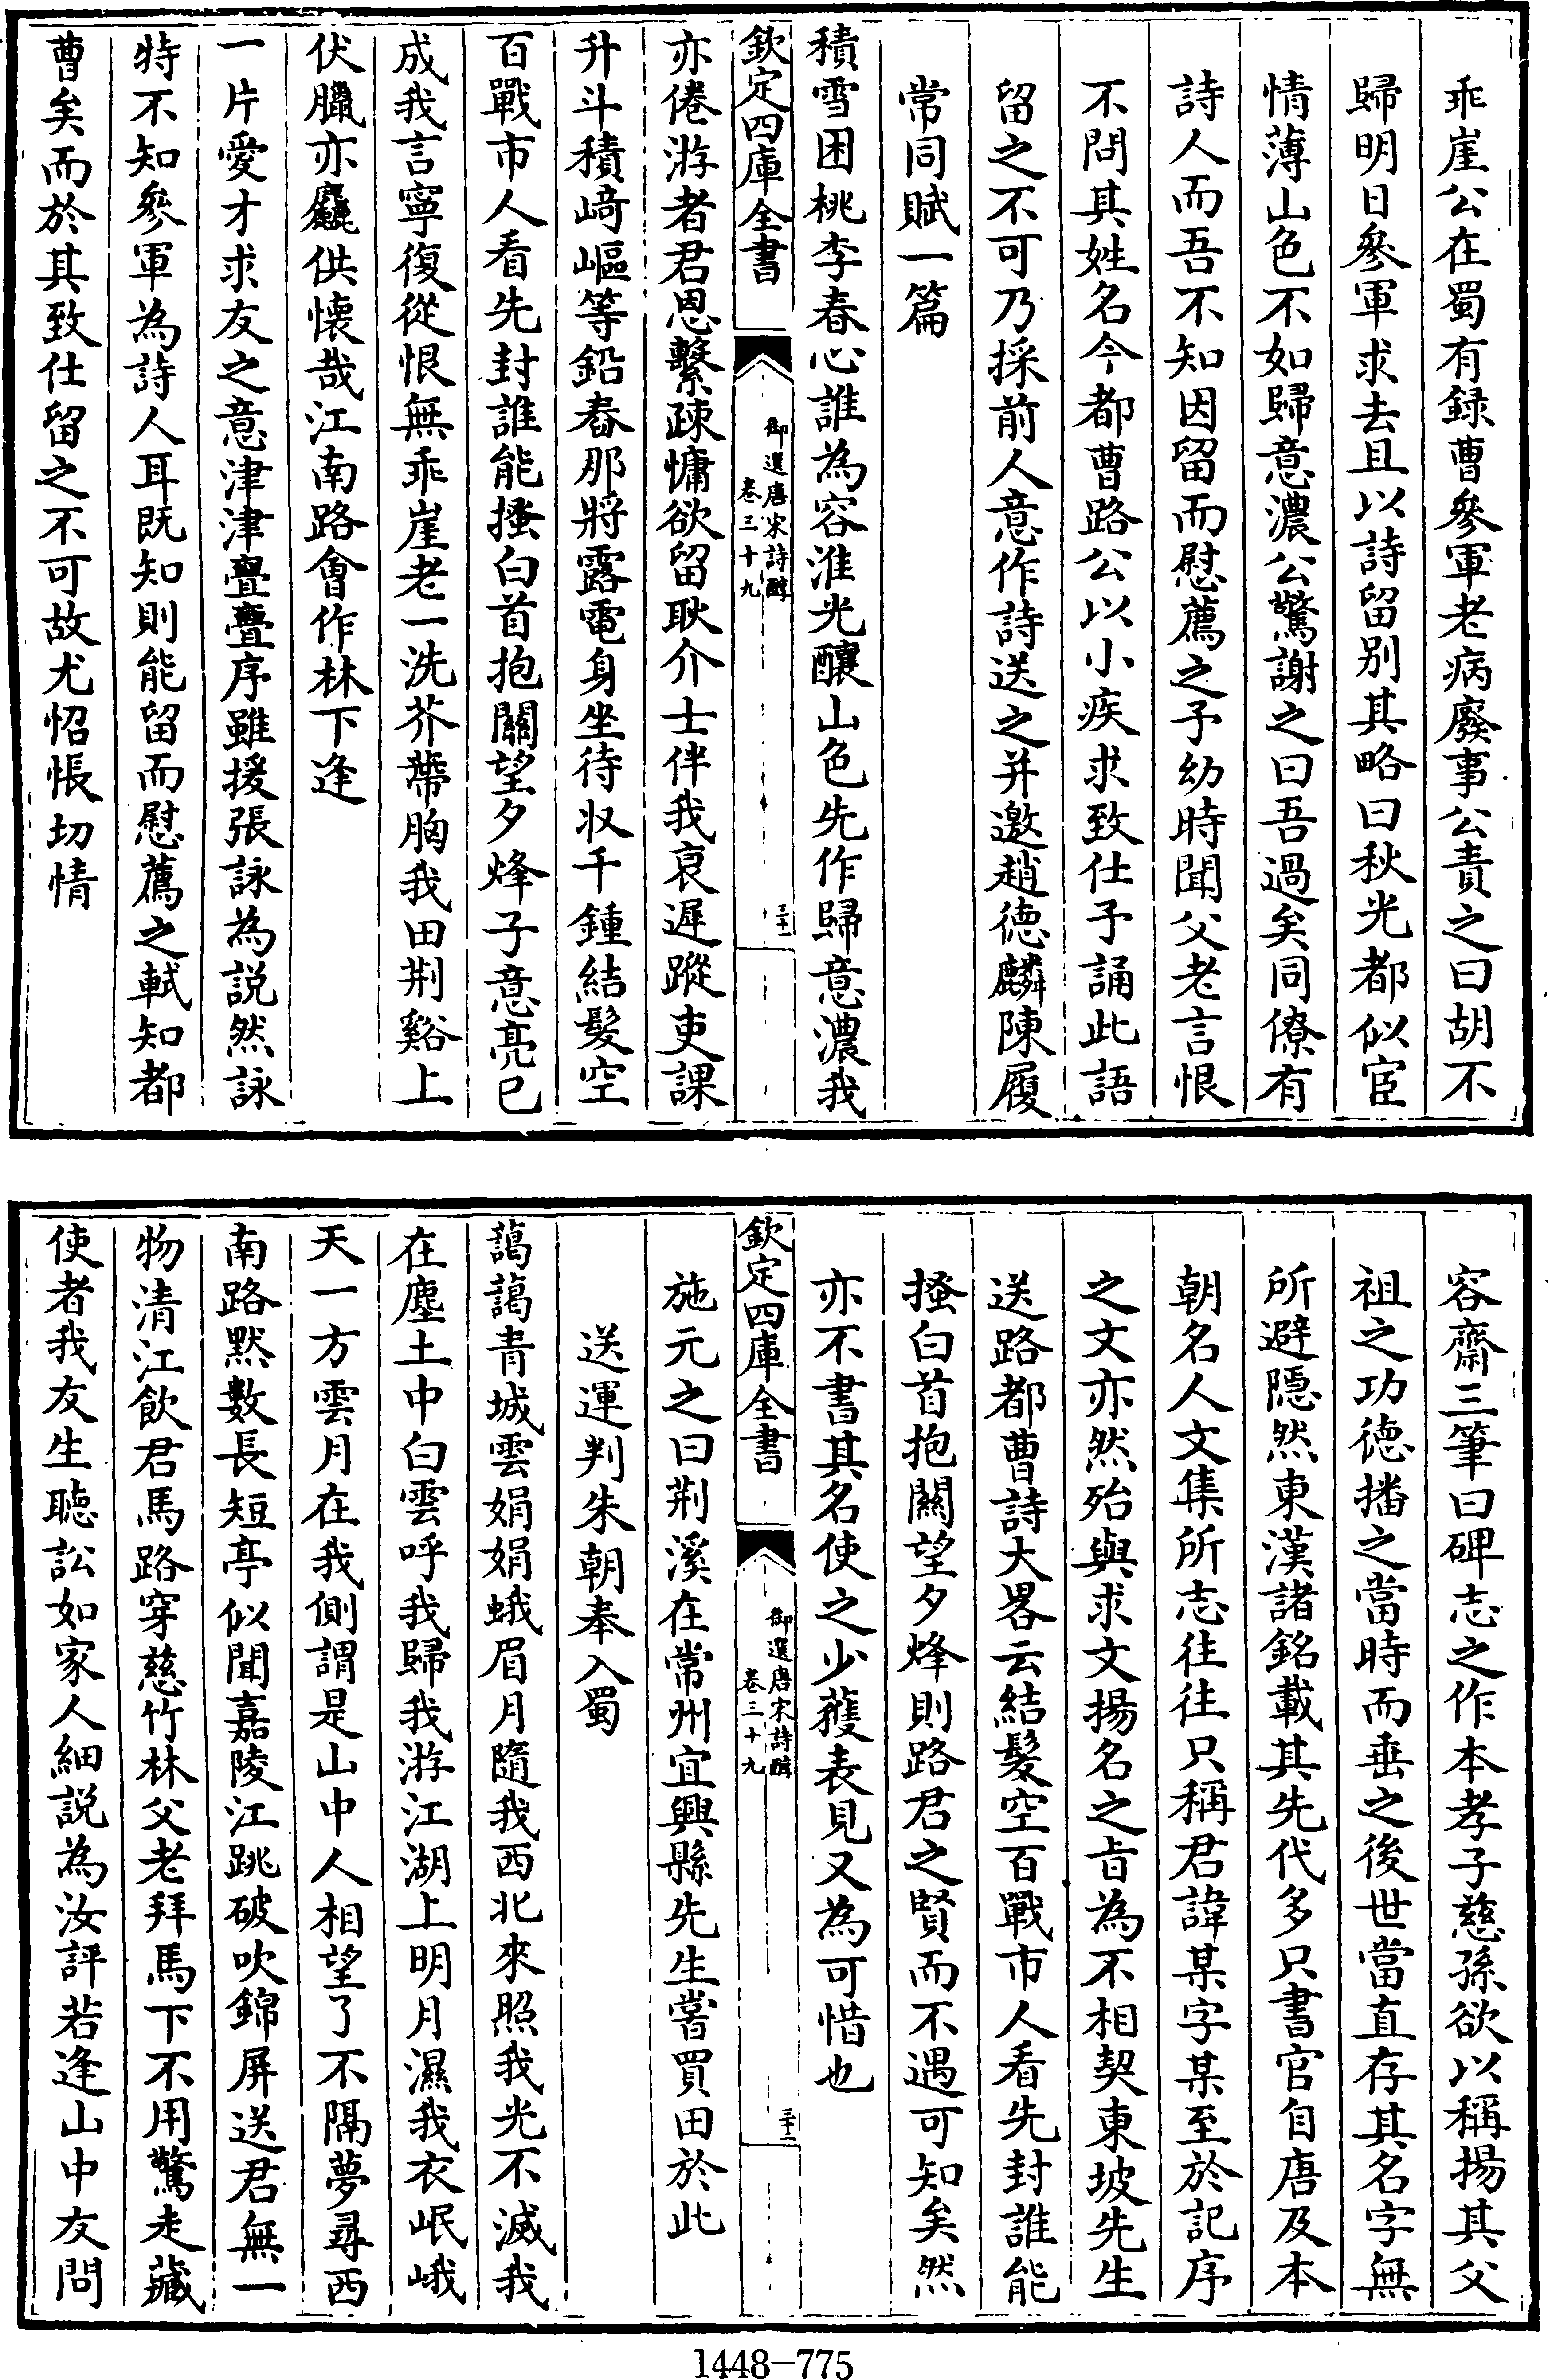 乖崖公在蜀有録曹參軍老病廢事公責之曰胡不
歸明日參軍求去且以詩留别其略曰秋光都似宦
情薄山色不如歸意濃公驚謝之曰吾過矣同僚有
詩人而吾不知因留而慰薦之予幼時聞父老言恨
不問其姓名今都曹路公以小疾求致仕予誦此語
留之不可乃採前人意作詩送之并邀趙徳麟陳履
常同賦一篇
積雪困桃李春心誰為容淮光釀山色先作歸意濃我
欽定四庫全書
御選唐宋詩醇
卷三十九
三十一
亦倦游者君恩繫疎慵欲留耿介士伴我衰遲蹤吏課
升斗積﨑嶇等鉛舂那將露電身坐待収千鍾結髮空
百戰市人看先封誰能搔白首抱關望夕烽子意亮已
成我言寧復從恨無乖崖老一洗芥蔕胸我田荆谿上
伏臘亦麤供懐哉江南路會作林下逢
一片愛才求友之意津津亹亹序雖援張詠為説然詠
特不知參軍為詩人耳既知則能留而慰薦之軾知都
曹矣而於其致仕留之不可故尤怊悵切情
容齋三筆曰碑志之作本孝子慈孫欲以稱揚其父
祖之功徳播之當時而垂之後世當直存其名字無
所避隠然東漢諸銘載其先代多只書官自唐及本
朝名人文集所志往往只稱君諱某字某至於記序
之文亦然殆與求文揚名之㫖為不相契東坡先生
送路都曹詩大畧云結髮空百戰市人看先封誰能
搔白首抱關望夕烽則路君之賢而不遇可知矣然
亦不書其名使之少獲表見又為可惜也
欽定四庫全書
御選唐宋詩醇
卷三十九
三十二
施元之曰荆溪在常州宜興縣先生嘗買田於此
送運判朱朝奉入蜀
藹藹青城雲娟娟蛾眉月隨我西北來照我光不滅我
在塵土中白雲呼我歸我游江湖上明月濕我衣岷峨
天一方雲月在我側謂是山中人相望了不隔夢尋西
南路黙數長短亭似聞嘉陵江跳破吹錦屏送君無一
物清江飲君馬路穿慈竹林父老拜馬下不用驚走藏
使者我友生聴訟如家人細説為汝評若逢山中友問
1448—775